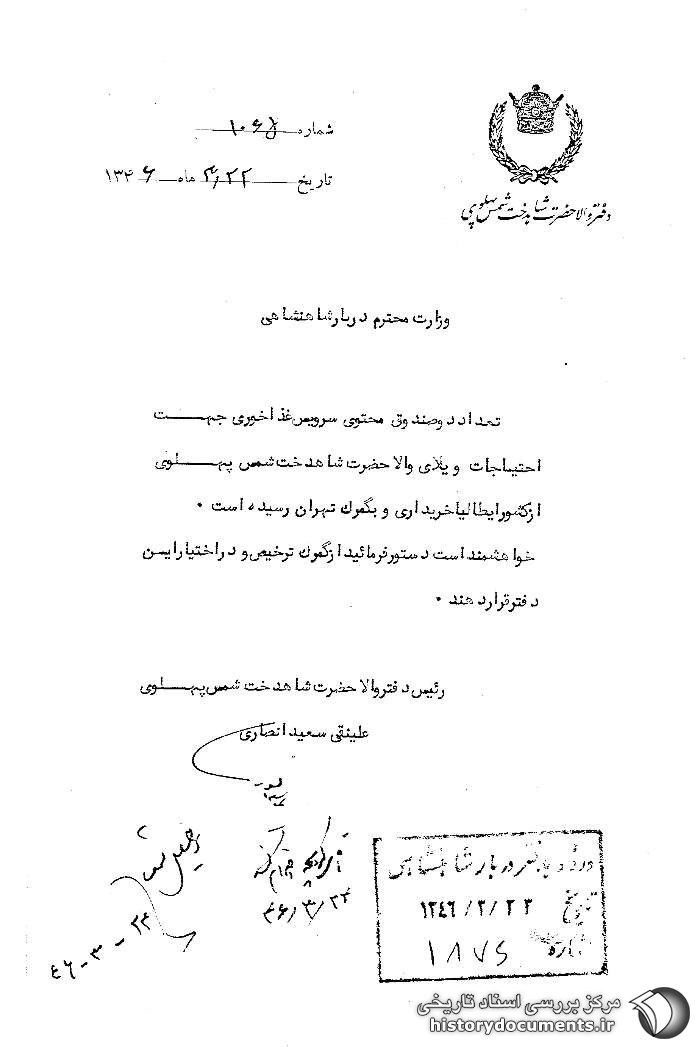 دفتر والاحضرت شاهدخت شمس پهلوی
شماره ۱۰۶۷
تاریخ ۳٫۲۲ ماه ۱۳۴۶
وزارت محترم دربار شاهنشاهی
تعداد دو صندوق محتوی سرویس غذاخوری جهت
احتیاجات ویلای والاحضرت شاهدخت شمس پهلوی
از کشور ایطالیا خریداری و بگمرك تهران رسیده است .
خواهشمند است دستور فرمائید از گمرك ترخیص و در اختیار این
دفتر قرار دهند .
رئیس دفتر والاحضرت شاهدخت شمس پهلوی
علینقی سعید انصاری
آقای
۴۶/۳/۲۴
۲۴-۳-۴۶
ورود بدفتر دربار شاهنشاهی
تاریخ ۱۳۴۶/۳/۲۳
شماره ۱۸۷۶
مرکز بررسی اسناد تاریخی
historydocuments.ir